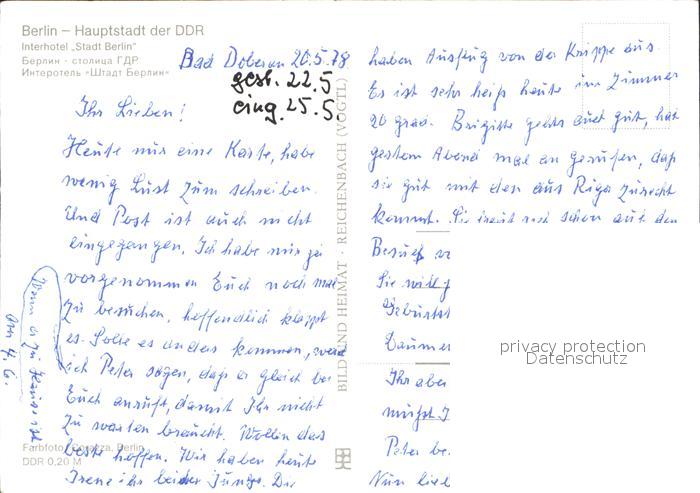 Berlin – Hauptstadt der DDR
Interhotel „Stadt Berlin“
Берлин - столица ГДР
Интеротель «Штадт Берлин»
Bad Doberan 20.5.78
gesch. 22.5
eing. 25.5.
Ihr Lieben!
Heute nur eine Karte, habe
wenig Lust zum schreiben.
Und Post ist auch nicht
eingegangen. Ich habe mir ja
vorgenommen Euch noch mal
zu besuchen, hoffendlich klappt
es. Solte es anders kommen, werd
ich Peter sagen, daß er gleich bei
Euch anruft, damit Ihr nicht
zu warten braucht. Wollen das
beste hoffen. Wir haben heute
Irene ihr beider Jungs. Die
Wenn er zu Hause ist
am 4.6.
haben Ausflug von der Krippe aus.
Es ist sehr heiß heute im Zimmer
20 grad. Brigitte gehts auch gut, hat
gestern Abend mal an gerufen, daß
sie gut mit den aus Riga zurecht
kommt. Sie freut sich schon auf den
Besuch
Sie will
Geburtst
Daumen
Ihr aber
müßt
Peter be
Nun lieb
BILD UND HEIMAT · REICHENBACH (VOGTL)
Farbfoto: Corazza, Berlin
DDR 0,20 M
privacy protection
Datenschutz